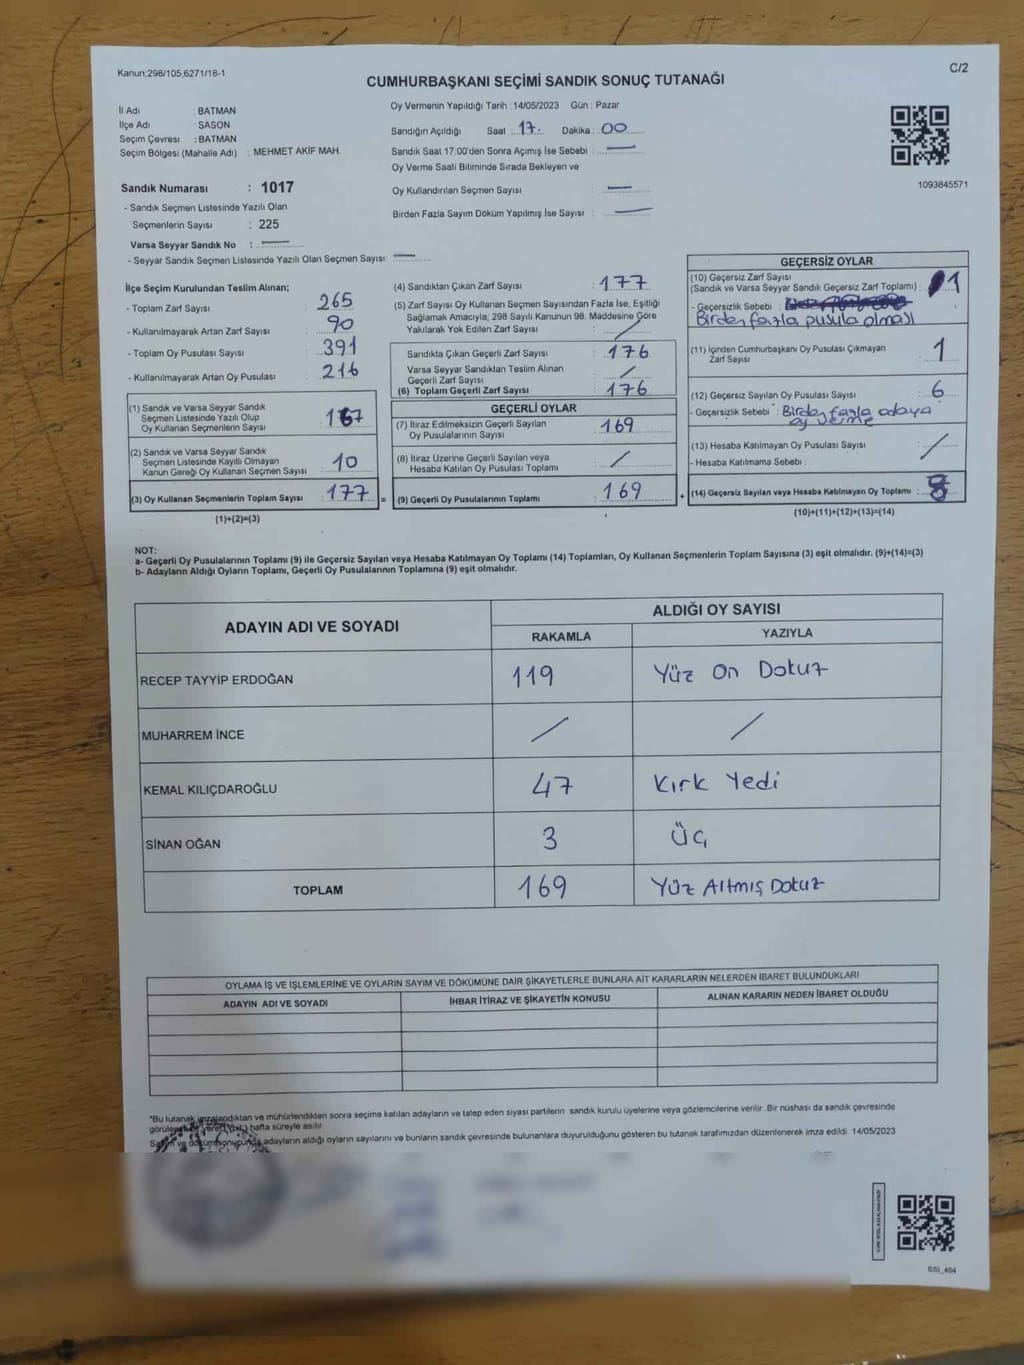 Kanun;298/105;6271/18-1
C/2
CUMHURBAŞKANI SEÇİMİ SANDIK SONUÇ TUTANAĞI
İl Adı : BATMAN
İlçe Adı : SASON
Seçim Çevresi : BATMAN
Seçim Bölgesi (Mahalle Adı) : MEHMET AKİF MAH.
Sandık Numarası : 1017
- Sandık Seçmen Listesinde Yazılı Olan
Seçmenlerin Sayısı : 225
Varsa Seyyar Sandık No : —
- Seyyar Sandık Seçmen Listesinde Yazılı Olan Seçmen Sayısı: —
Oy Vermenin Yapıldığı Tarih :14/05/2023 Gün : Pazar
Sandığın Açıldığı Saat : 17. Dakika : 00
Sandık Saat 17:00'den Sonra Açımış İse Sebebi : —
Oy Verme Saati Bitiminde Sırada Bekleyen ve
Oy Kullandırılan Seçmen Sayısı : —
Birden Fazla Sayım Döküm Yapılmış İse Sayısı : —
1093845571
İlçe Seçim Kurulundan Teslim Alınan;
- Toplam Zarf Sayısı : 265
- Kullanılmayarak Artan Zarf Sayısı : 90
- Toplam Oy Pusulası Sayısı : 391
- Kullanılmayarak Artan Oy Pusulası : 216
(1) Sandık ve Varsa Seyyar Sandık
Seçmen Listesinde Yazılı Olup
Oy Kullanan Seçmenlerin Sayısı : 167
(2) Sandık ve Varsa Seyyar Sandık
Seçmen Listesinde Kayıtlı Olmayan
Kanun Gereği Oy Kullanan Seçmen Sayısı : 10
(3) Oy Kullanan Seçmenlerin Toplam Sayısı : 177 =
(1)+(2)=(3)
(4) Sandıktan Çıkan Zarf Sayısı : 177
(5) Zarf Sayısı Oy Kullanan Seçmen Sayısından Fazla İse, Eşitliği
Sağlamak Amacıyla; 298 Sayılı Kanunun 98. Maddesine Göre
Yakılarak Yok Edilen Zarf Sayısı : /
Sandıkta Çıkan Geçerli Zarf Sayısı : 176
Varsa Seyyar Sandıktan Teslim Alınan
Geçerli Zarf Sayısı : /
(6) Toplam Geçerli Zarf Sayısı : 176
GEÇERLİ OYLAR
(7) İtiraz Edilmeksizin Geçerli Sayılan
Oy Pusulalarının Sayısı : 169
(8) İtiraz Üzerine Geçerli Sayılan veya
Hesaba Katılan Oy Pusulası Toplamı : /
(9) Geçerli Oy Pusulalarının Toplamı : 169 +
GEÇERSİZ OYLAR
(10) Geçersiz Zarf Sayısı
(Sandık ve Varsa Seyyar Sandık Geçersiz Zarf Toplamı) : 1
- Geçersizlik Sebebi :
Birden fazla pusula olması
(11) İçinden Cumhurbaşkanı Oy Pusulası Çıkmayan
Zarf Sayısı : 1
(12) Geçersiz Sayılan Oy Pusulası Sayısı : 6
- Geçersizlik Sebebi : Birden fazla adaya
oy verme
(13) Hesaba Katılmayan Oy Pusulası Sayısı : /
- Hesaba Katılmama Sebebi :
(14) Geçersiz Sayılan veya Hesaba Katılmayan Oy Toplamı : 8
(10)+(11)+(12)+(13)=(14)
NOT:
a- Geçerli Oy Pusulalarının Toplamı (9) ile Geçersiz Sayılan veya Hesaba Katılmayan Oy Toplamı (14) Toplamları, Oy Kullanan Seçmenlerin Toplam Sayısına (3) eşit olmalıdır. (9)+(14)=(3)
b- Adayların Aldığı Oyların Toplamı, Geçerli Oy Pusulalarının Toplamına (9) eşit olmalıdır.
ADAYIN ADI VE SOYADI
ALDIĞI OY SAYISI
RAKAMLA YAZIYLA
RECEP TAYYİP ERDOĞAN 119 Yüz On Dokuz
MUHARREM İNCE / /
KEMAL KILIÇDAROĞLU 47 Kırk Yedi
SİNAN OĞAN 3 Üç
TOPLAM 169 Yüz Altmış Dokuz
OYLAMA İŞ VE İŞLEMLERİNE VE OYLARIN SAYIM VE DÖKÜMÜNE DAİR ŞİKAYETLERLE BUNLARA AİT KARARLARIN NELERDEN İBARET BULUNDUKLARI
ADAYIN ADI VE SOYADI İHBAR İTİRAZ VE ŞİKAYETİN KONUSU ALINAN KARARIN NEDEN İBARET OLDUĞU
*Bu tutanak imzalandıktan ve mühürlendikten sonra seçime katılan adayların ve talep eden siyasi partilerin sandık kurulu üyelerine veya gözlemcilerine verilir. Bir nüshası da sandık çevresinde
hafta süreyle asılır.
adayların aldığı oyların sayılarını ve bunların sandık çevresinde bulunanlara duyurulduğunu gösteren bu tutanak tarafımızdan düzenlenerek imza edildi. 14/05/2023
GSI_404